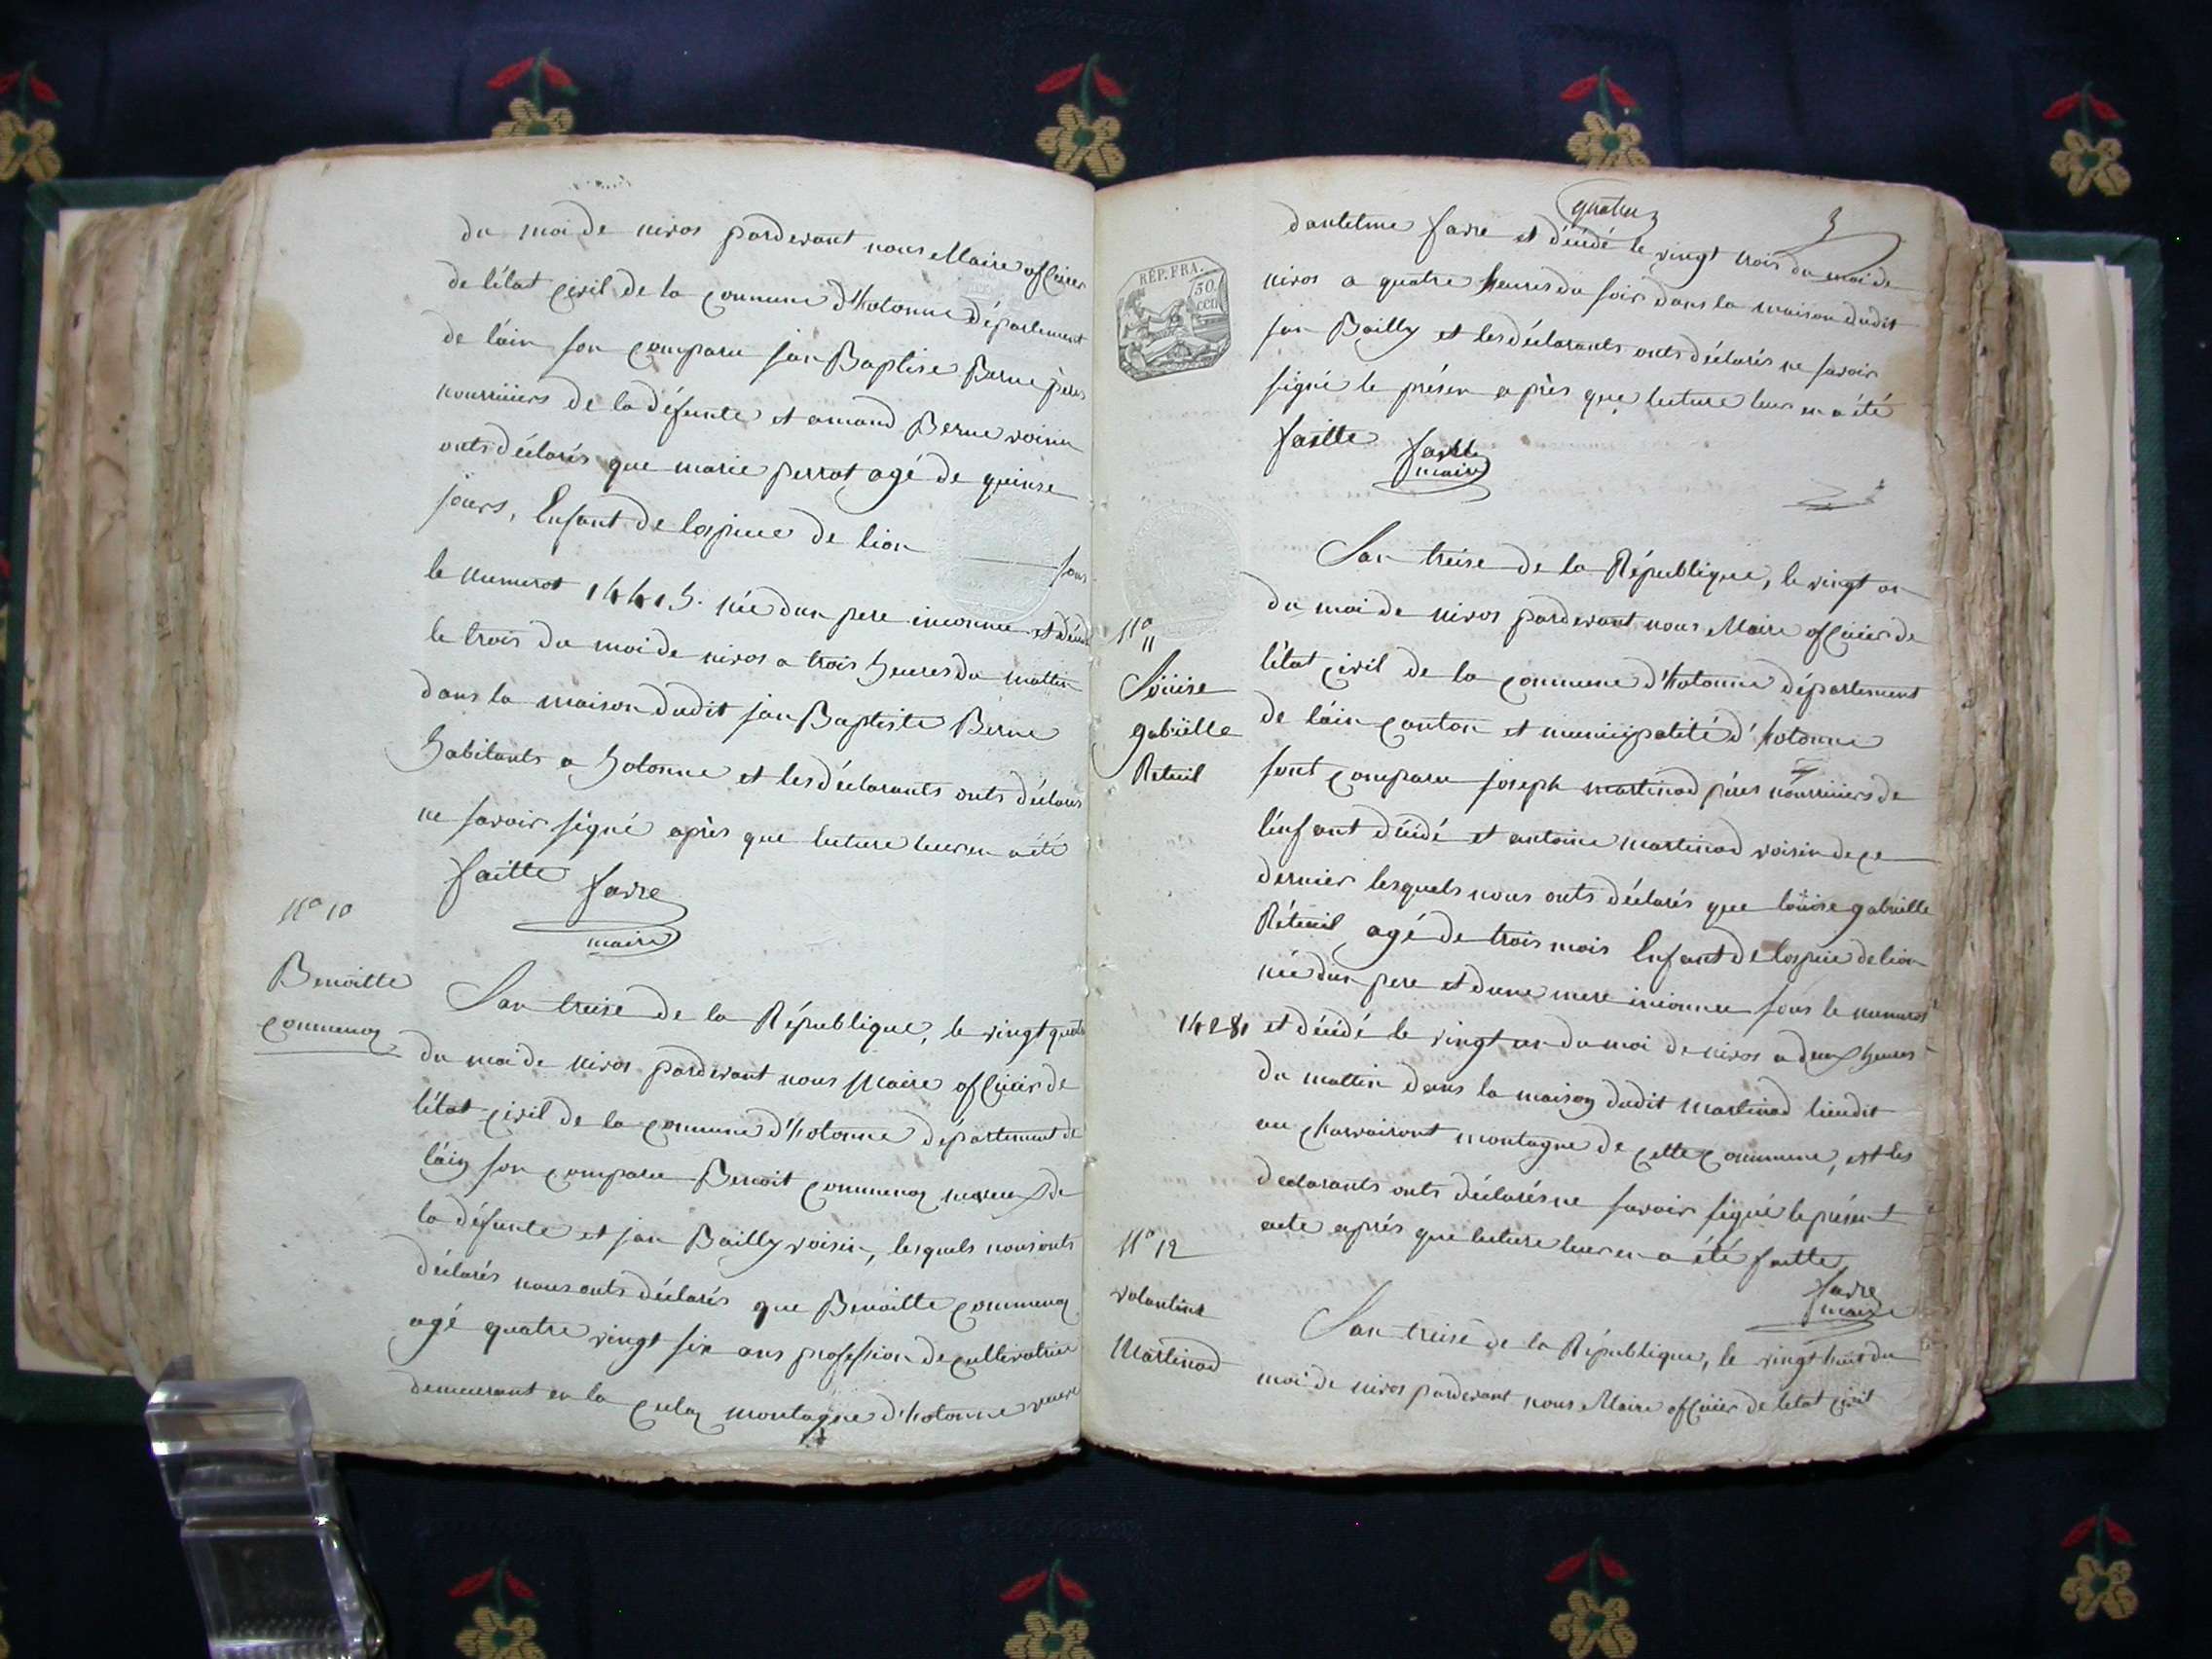 du moi de nivos pardevant nous Maire officier
de létat civil de la commune d'hotonne département
de láin son comparu jan Baptise Berne péres
nourriciers de la défunte et amand Berne voisin
onts déclarés que marie perrot agé de quinse
jours, Enfant de lospice de lion sous
le numerot 14415. née dun pere inconnu et décédé
le trois du moi de nivos a trois heures du mattin
dans la maison dudit jan Baptiste Berne
habitants a hotonne et les déclarants onts déclarés
ne savoir signé après que lecture leur en a été
faitte favre
maire
No 10
Benoitte
commenoz
Lan treise de la République, le vingt quatre
du moi de nivos pardevant nous Maire officier de
létat civil de la commune d'hotonne département de
láin son comparu Benoit commenoz neveux de
la défunte et jan Bailly voisin, lesquels nous onts
déclarés nous onts déclarés que Benoitte commenoz
agé quatre vingt six ans profession de cultivatrice
demeurant en la culaz montagne d'hotonne veuve
quatre 3
dantelme favre et décédé le vingt trois du moi de
nivos a quatre heures du soir dans la maison dudit
jan Bailly et les déclarants onts déclarés ne savoir
signé le présen après que lecture leur en a été
faitte favre
maire
RÉP. FRA.
50
cen
No 11
Löuise
gabrielle
Reteuil
Lan treise de la République, le vingt un
du moi de nivos pardevant nous Maire officier de
létat civil de la commune d'hotonne département
de láin canton et municipalité d'hotonne
sont comparu joseph martinod péres nourriciers de
lénfant décédé et antoine martinod voisin de ce
dernier lesquels nous onts déclarés que löuise gabrielle
Réteuil agé de trois mois Enfant de lospice de lion
née dun pere et dune mere inconnu sous le numerot
14281 et décédé le vingt un du moi de nivos a deux heures
du mattin dans la maison dudit martinod lieudit
au montagne de cette commune, et les
declarants onts déclarés ne savoir signé le présent
acte aprés que lecture leur en a été faitte
favre
maire
No 12
valantine
Martinod
Lan treise de la République, le vingt huit du
moi de nivos pardevant nous Maire officier de létat civil